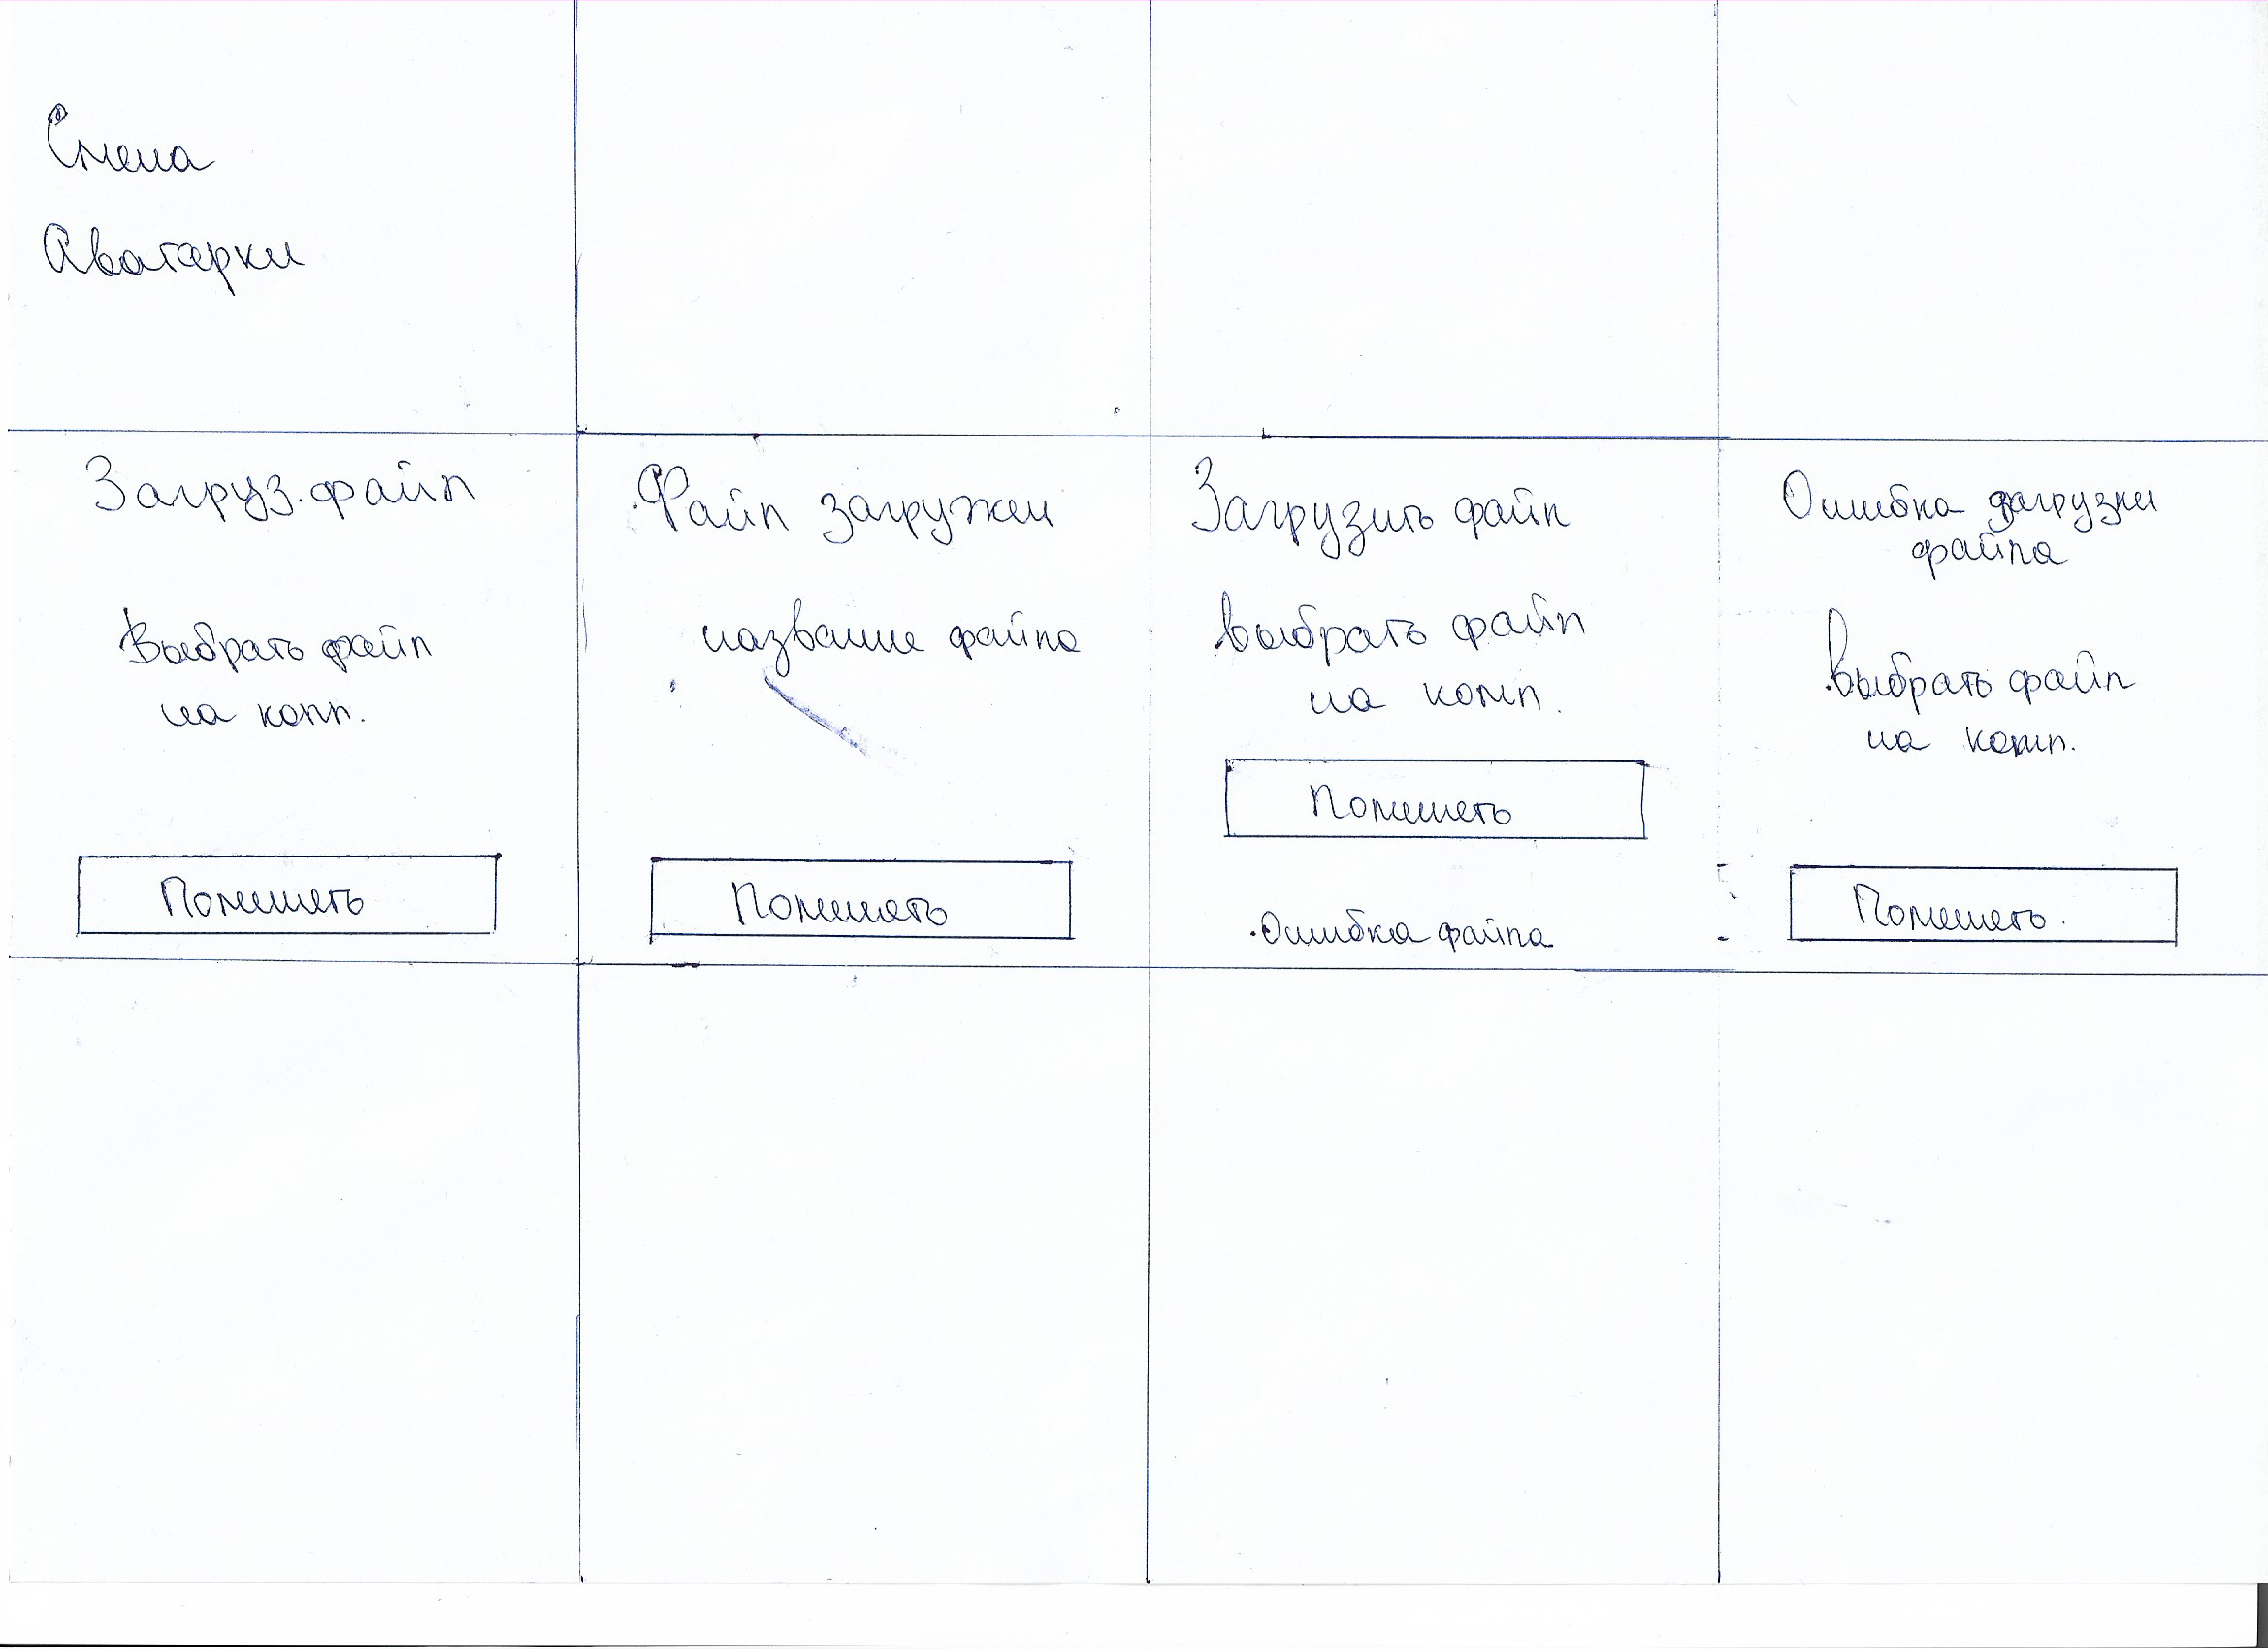 Смена
Аватарки
Загруз. файл
Выбрать файл
на комп.
Поменять
Файл загружен
название файла
Поменять
Загрузить файл
выбрать файл
на комп.
Поменять
Ошибка файла
Ошибка загрузки
файла
выбрать файл
на комп.
Поменять